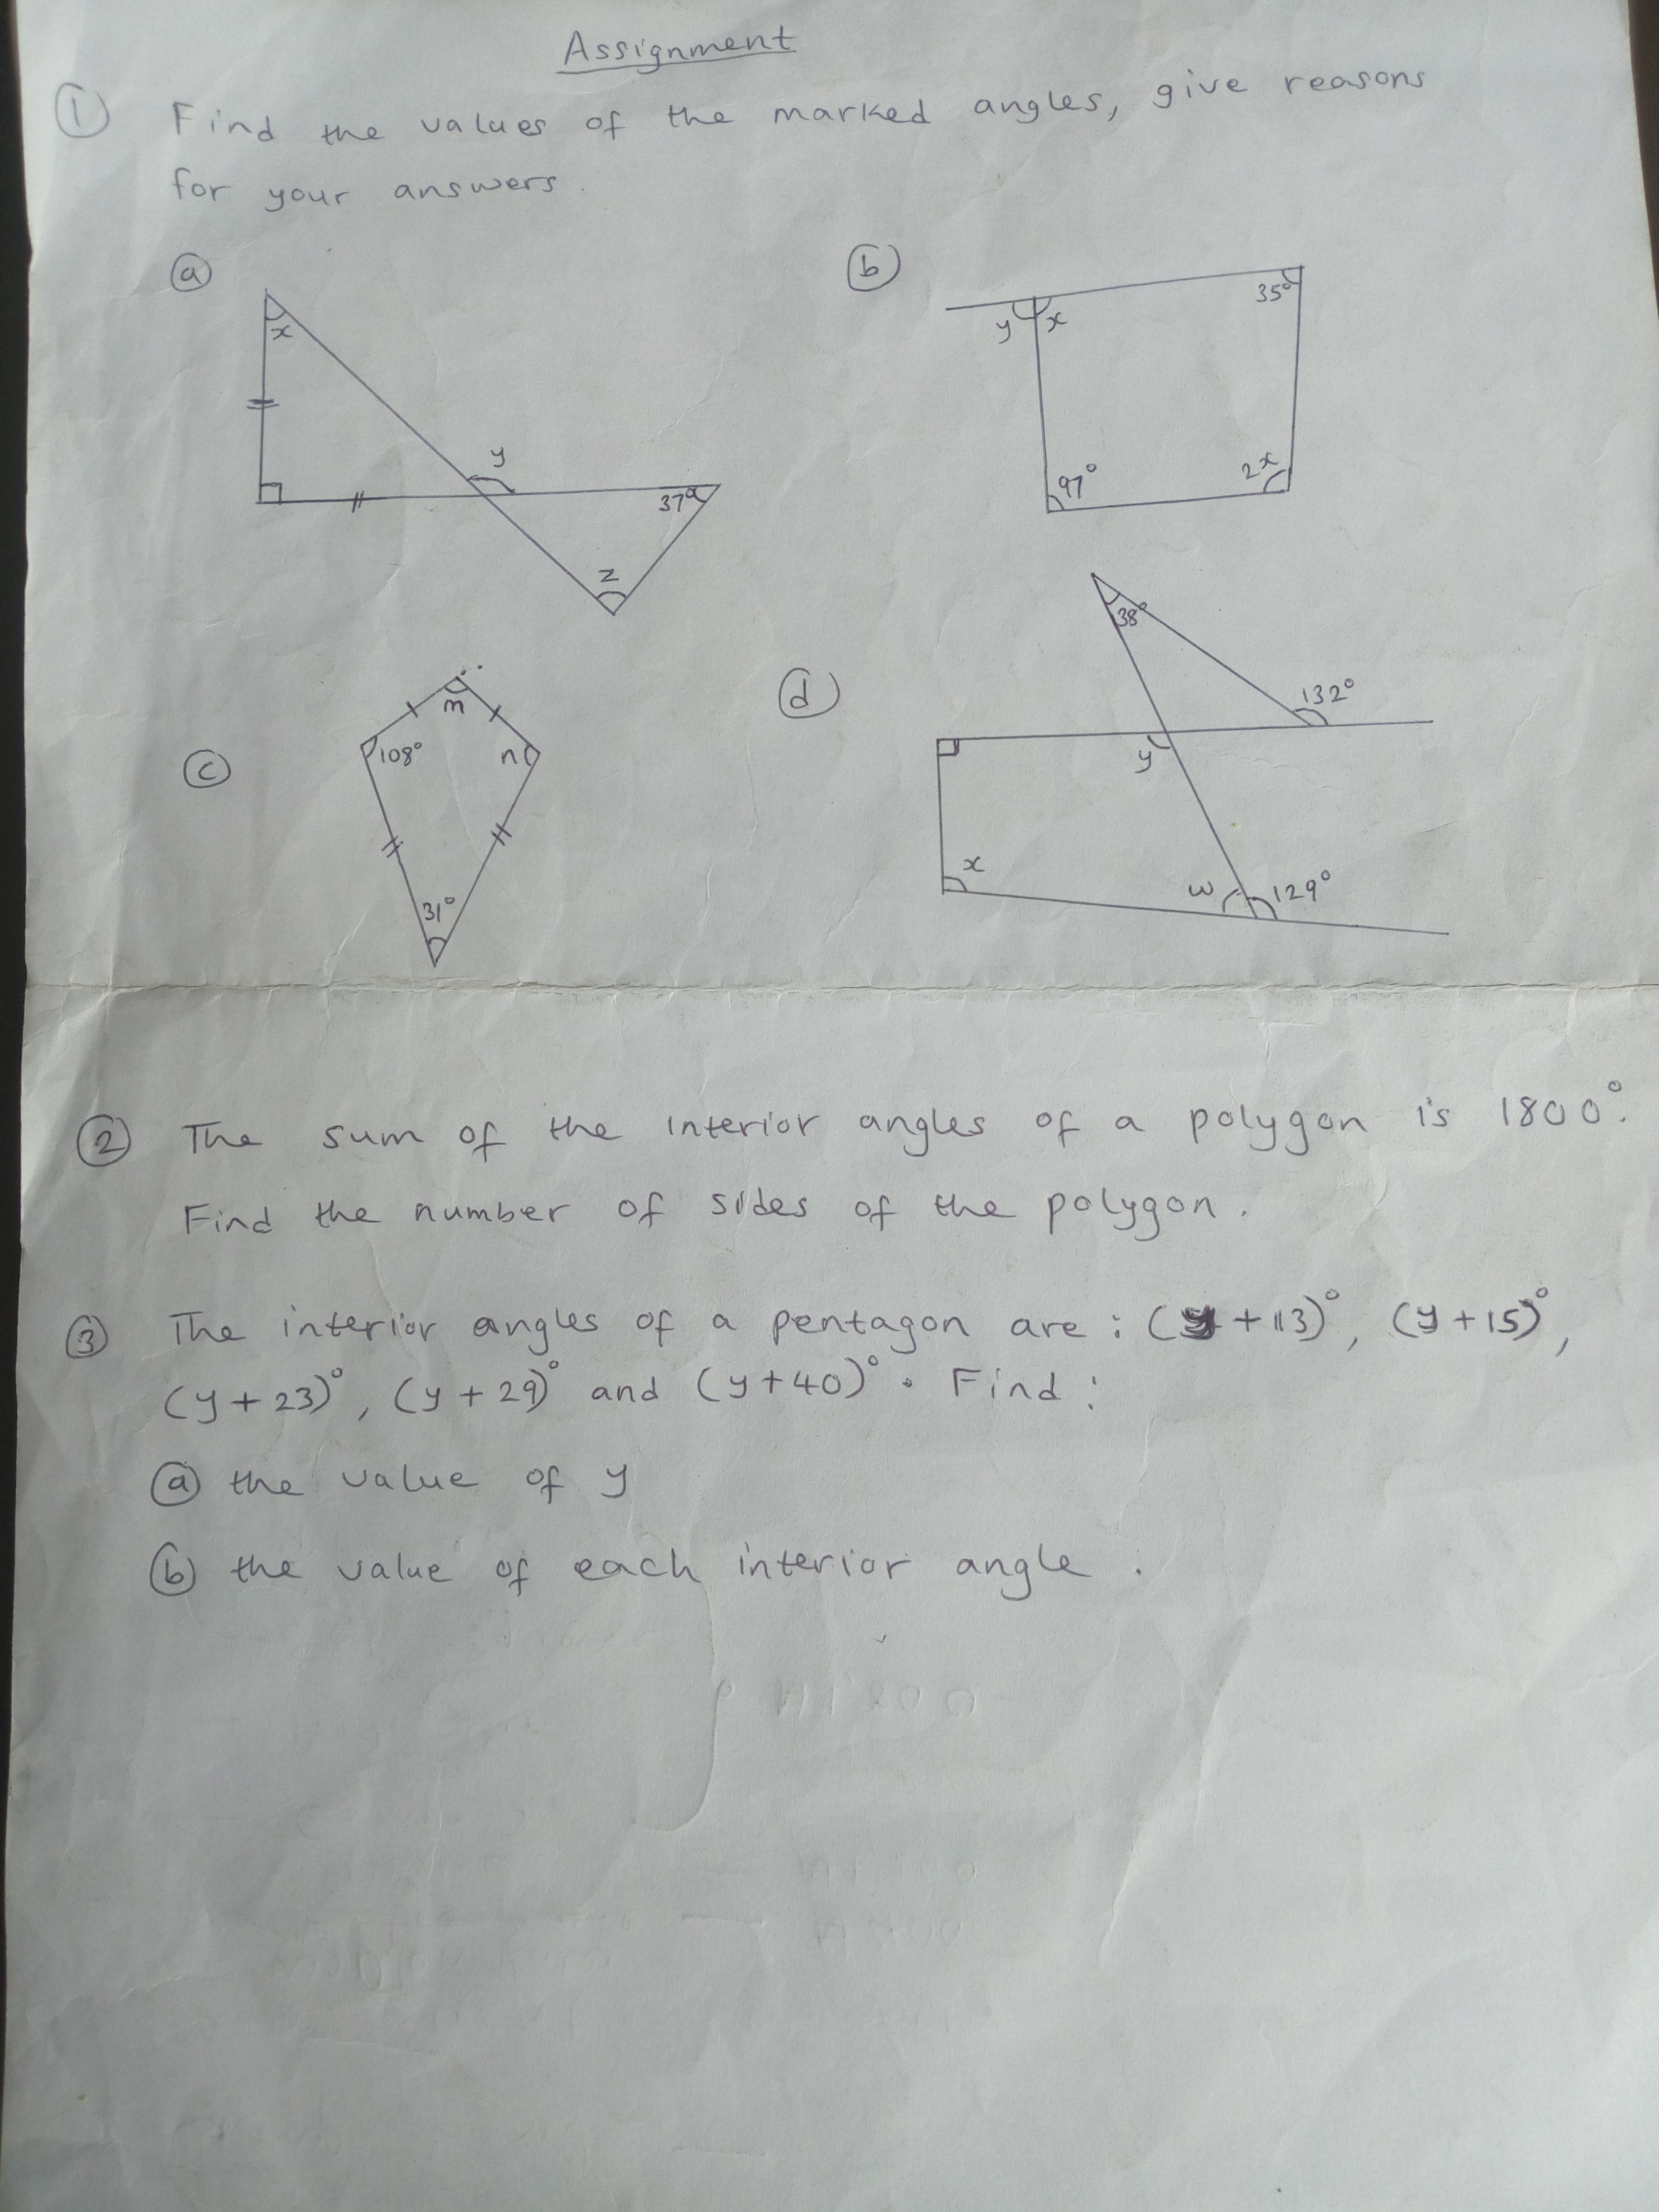 Assignment
① Find the values of the marked angles, give reasons
for your answers.
ⓐ
x
y
37°
z
ⓑ
35°
y x
97°
2x
ⓒ
m
108°
n
31°
ⓓ
38°
132°
y
x
w
129°
② The sum of the interior angles of a polygon is 1800°.
Find the number of sides of the polygon.
③ The interior angles of a pentagon are: (y+13)°, (y+15)°,
(y+23)°, (y+29)° and (y+40)°. Find:
ⓐ the value of y
ⓑ the value of each interior angle.